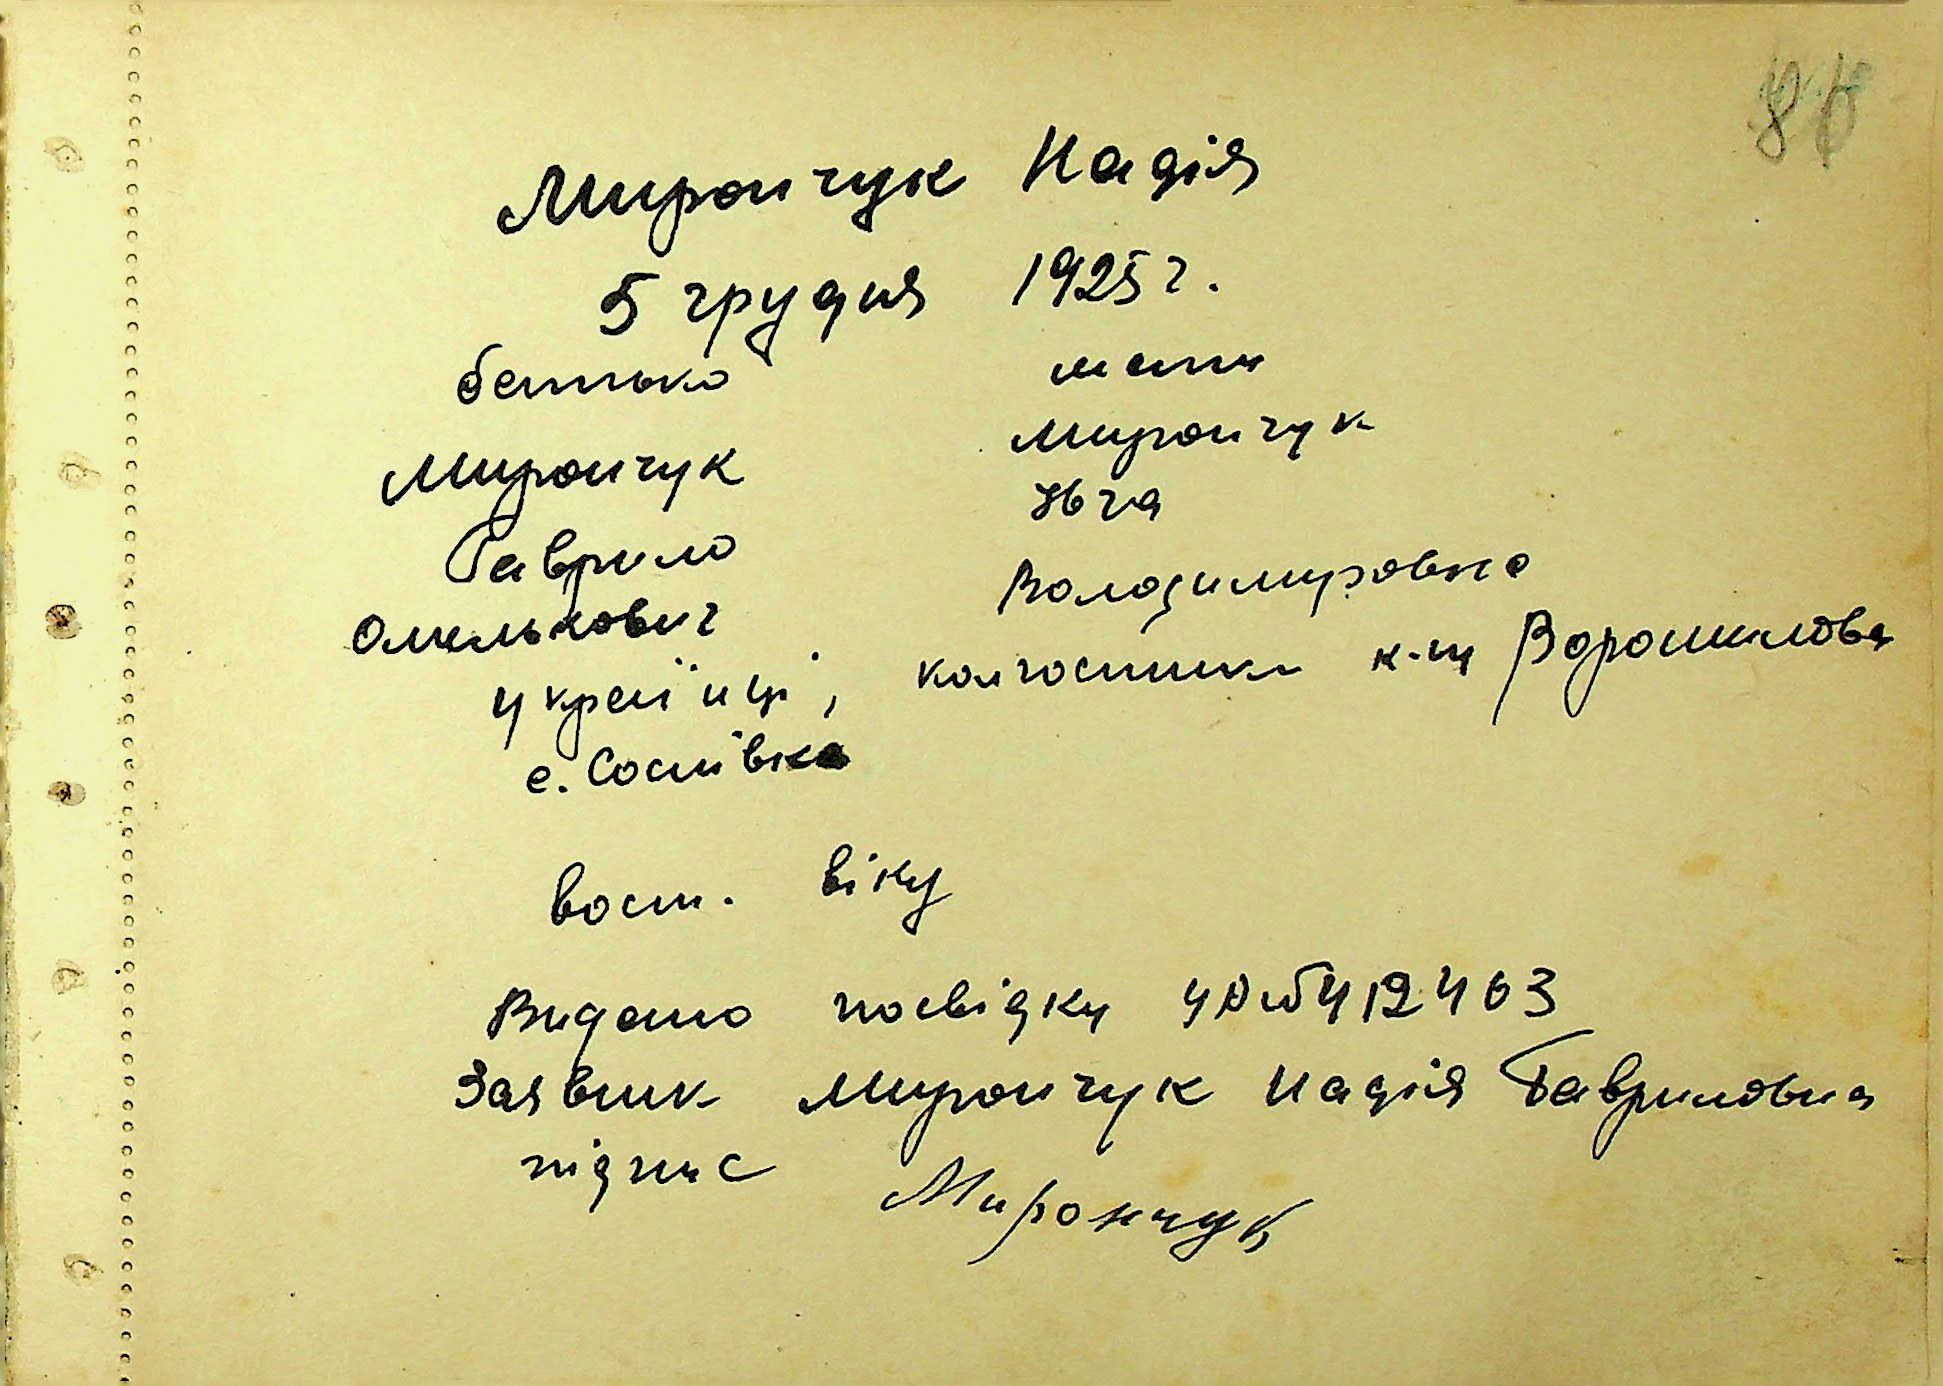 86
Мирончук Надія
5 грудня 1925 г.
батько мати
Мирончук Мирончук
Гаврило Явга
Омелькович Володимировна
українці, колгоспники к-пу Ворошилова
с. Соснівка
вост. віку
Видано посвідку 412463
Заявник Мирончук Надія Гавриловна
підпис Мирончук